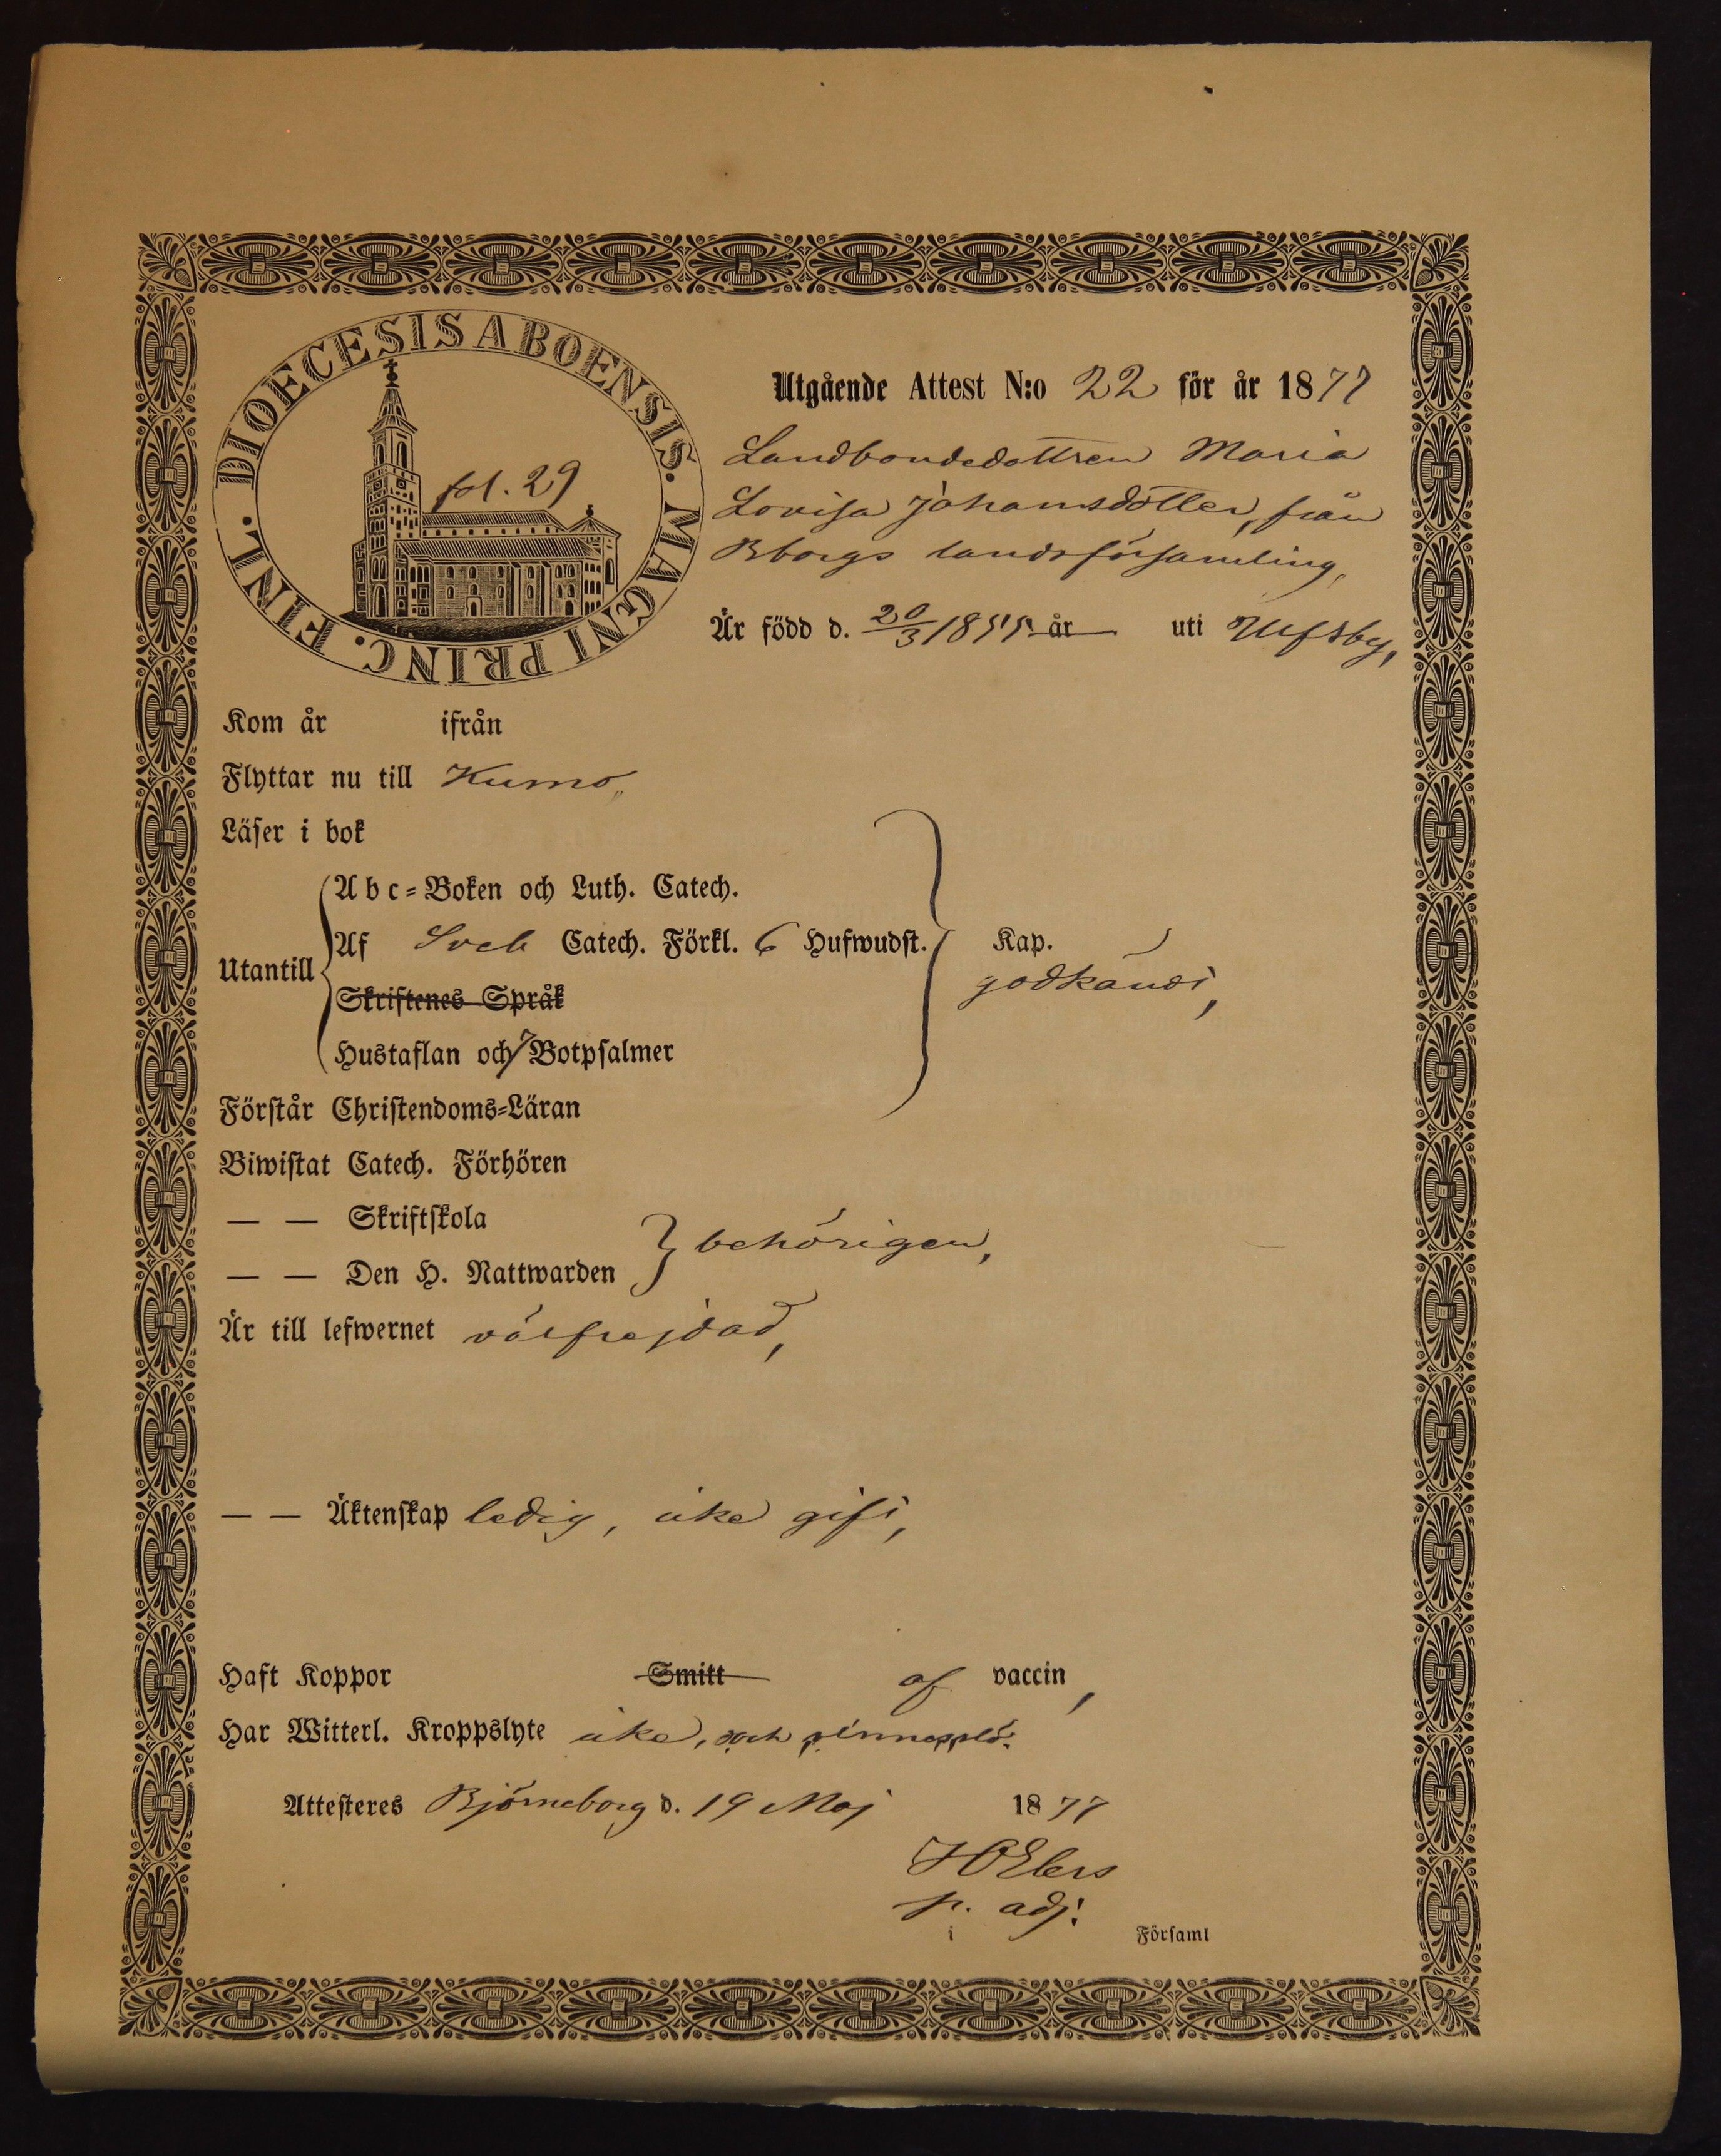 DIOECESIS ABOENSIS. MAGNI PRINC. FINL.
fol. 29
Utgående Attest N:o 22 för år 1877
Landbondedottren Maria
Lovisa Johansdotter, från
Bborgs landsförsamling,
Är född d. 20/3 1855 år uti Ulfsby,
Kom år ifrån
Flyttar nu till Kumo,
Läser i bok
Abc-Boken och Luth. Catech.
Utantill Af Sveb Catech. Förkl. 6 Hufwudst. Kap.
godkändt,
Skriftenes Språk
Hustaflan och 7 Botpsalmer
Förstår Christendoms-Läran
Biwistat Catech. Förhören
— — Skriftskola
behörigen,
— — Den H. Nattwarden
Är till lefwernet välfrejdad,
— — Äktenskap ledig, icke gift,
Haft Koppor Smitt af vaccin,
Har Witterl. Kroppslyte icke,
Attesteres Björneborg d. 19 Maj 1877
p. adj.
i Församl